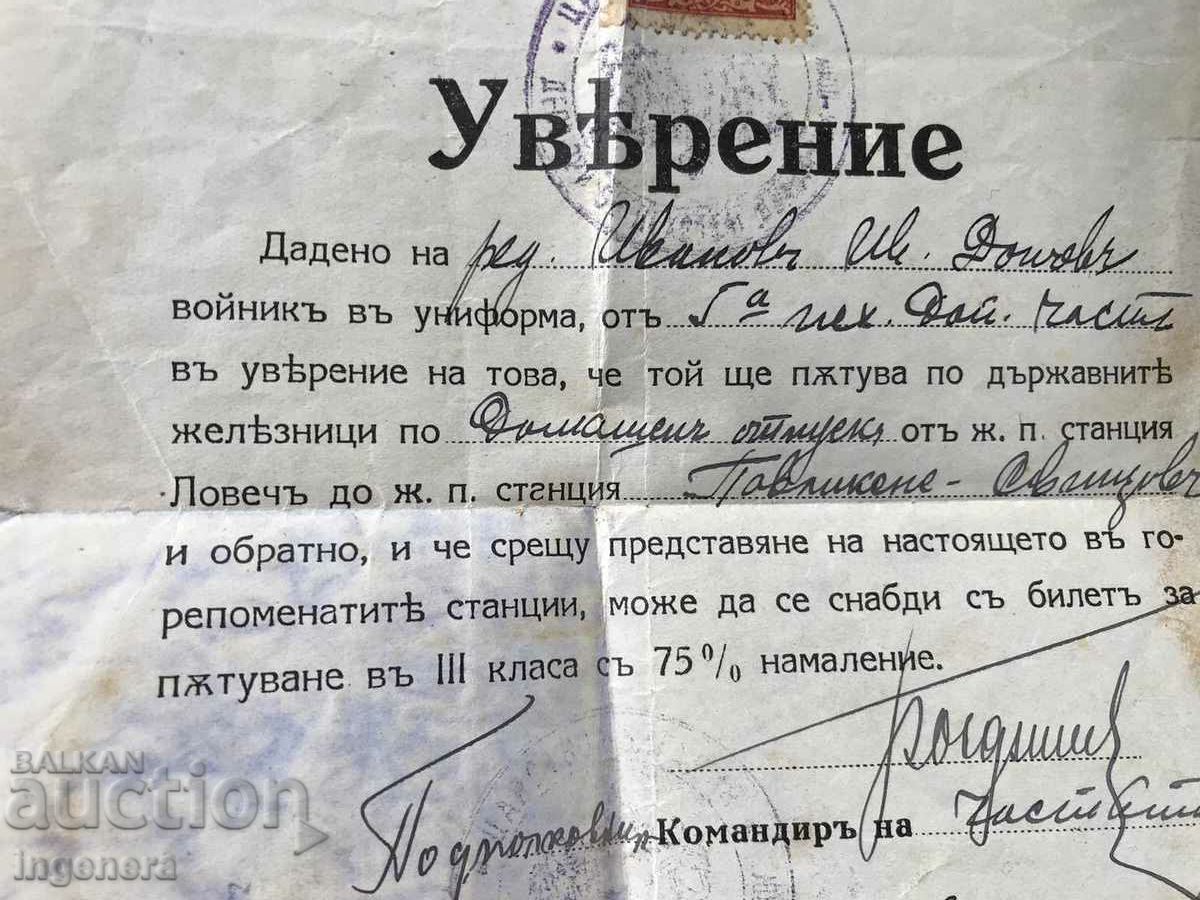 Увѣрение
Дадено на ред. Ивановъ Ив. Дончовъ
войникъ въ униформа, отъ 5а пех. Дой. част
въ увѣрение на това, че той ще пѫтува по държавнитѣ
желѣзници по Домашенъ отпускъ отъ ж. п. станция
Ловечъ до ж. п. станция Павликене -
и обратно, и че срещу представяне на настоящето въ го-
репоменатитѣ станции, може да се снабди съ билетъ за
пѫтуване въ III класа съ 75% намаление.
Подполковникъ Командиръ на частьта
BALKAN
auction
ingenera